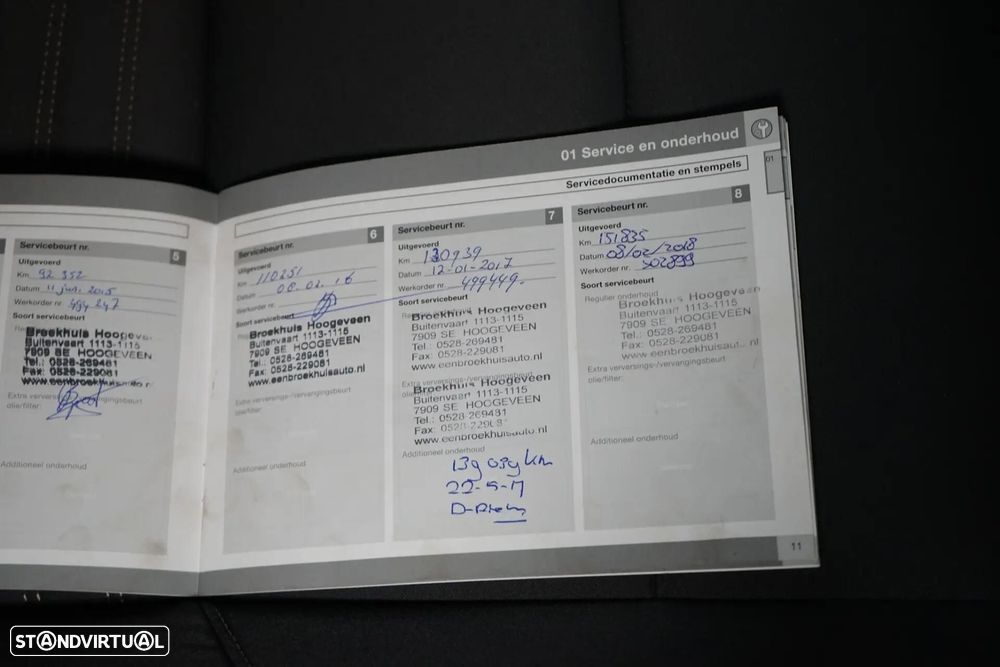 01 Service en onderhoud
Servicedocumentatie en stempels
01
Servicebeurt nr. 5
Uitgevoerd
Km 92 352
Datum 11 jun. 2015
Werkorder nr. 494 247
Broekhuis Hoogeve
Buitenvaart 1113-1115
7909 SE HOOGEVEEN
Tel.: 0528-269481
Fax: 0528-229081
www.eenbroekhuis
Extra verversings-/vervangingsbeurt
oliefilter:
Additioneel onderhoud
Servicebeurt nr. 6
Uitgevoerd
Km 110251
Datum 02. 16
Werkorder nr.
Soort servicebeurt
Broekhuis Hoogeveen
Buitenvaart 1113-1115
7909 SE HOOGEVEEN
Tel.: 0528-269481
Fax: 0528-229081
www.eenbroekhuisauto.nl
Extra verversings-/vervangingsbeurt
oliefilter:
Additioneel onderhoud
Servicebeurt nr. 7
Uitgevoerd
Km 130939
Datum 12-01-2017
Werkorder nr. 499449.
Soort servicebeurt
Broekhuis Hoogeveen
Buitenvaart 1113-1115
7909 SE HOOGEVEEN
Tel.: 0528-269481
Fax: 0528-229081
www.eenbroekhuisauto.nl
Extra verversings-/vervangingsbeurt
Broekhuis Hoogeveen
Buitenvaart 1113-1115
7909 SE HOOGEVEEN
Tel.: 0528-269481
Fax:
www.eenbroekhuisauto.nl
Additioneel onderhoud
139 039 km
Servicebeurt nr. 8
Uitgevoerd
Km 151835
Datum 08/02/2018
Werkorder nr. 502899
Soort servicebeurt
Regulier onderhoud
Broekhuis Hoogeveen
Buitenvaart 1113-1115
7909 SE HOOGEVEEN
Tel.: 0528-269481
Fax: 0528-229081
www.eenbroekhuisauto.nl
Extra verversings-/vervangingsbeurt
oliefilter:
Additioneel onderhoud
11
STANDVIRTUAL